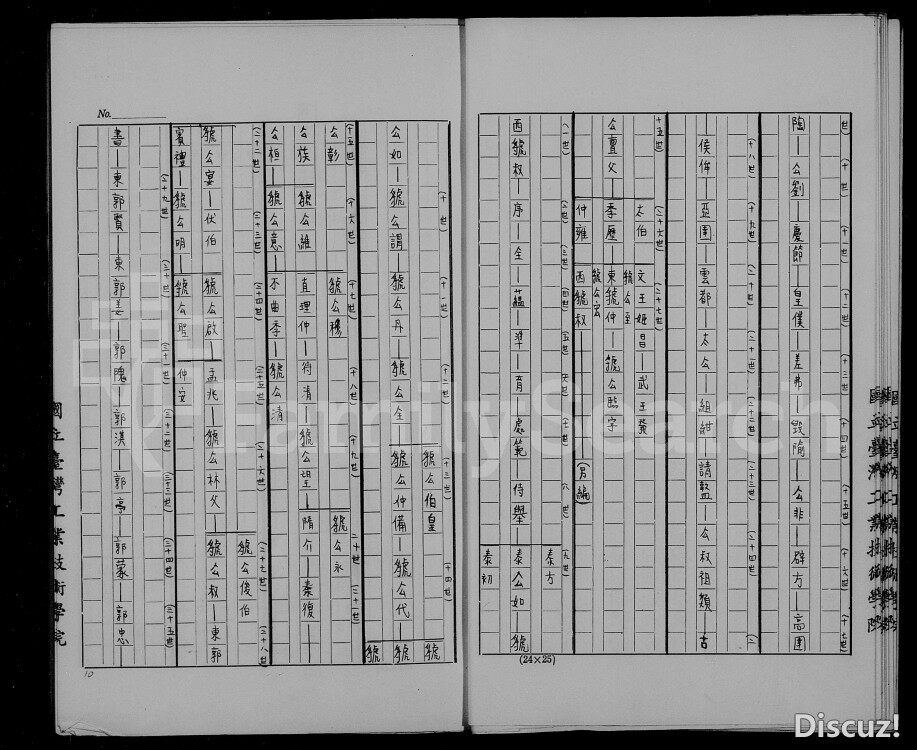 世） （十世） （十一世） （十二世） （十三世） （十四世） （十五世） （十六世） （十七世）
陶－公劉－慶節－皇僕－差弗－毀隃－公非－辟方－高圉
（十八世） （十九世） （二十世） （二十一世） （二十二世） （二十三世） （二十四世） （二
－侯侔－亞圉－雲都－太公－組紺－請盩－公叔祖類－古
十五世） （二十六世） （二十七世）
太伯 文王姬昌－武王發
公亶父－季歷 虢公至
東虢仲－虢公熙字 （另編）
仲雍 虢公宏
西虢叔－
（一世） （二世） （三世） （四世） （五世） （六世） （七世） （八世） （九世）
泰方
西虢叔－序－全－蘊－準－育－處範－侍舉－泰公如－虢
泰初
(24×25)
國立臺灣工業技術學院
No.
（十世） （十一世） （十二世） （十三世） （十四世）
虢公伯皇 虢
公如－虢公謂－虢公丹－虢公全－虢公仲備－虢公代－虢
虢
（十五世） （十六世） （十七世） （十八世） （十九世） 二十世 （二十一世）
公彰 虢公穆 虢公永
公族－虢公維 直理仲－侍清－虢公瑆－隋介－秦復－
公桓－虢公意－不曲季－虢公清
（二十二世） （二十三世） （二十四世） （二十五世） （二十六世） （二十七世） （二十八世）
虢公後伯
虢公宴－伏伯－虢公啟－孟兆－虢公林父－虢公叔－東郭
賓禮－虢公明－虢公聖－仲安
（二十九世） （三十世） （三十一世） （三十二世） （三十三世） （三十四世） （三十五世）
書－東郭賢－東郭姜－郭隗－郭漢－郭亭－郭蒙－郭忠
國立臺灣工業技術學院
10
FamilySearch
Discuz!